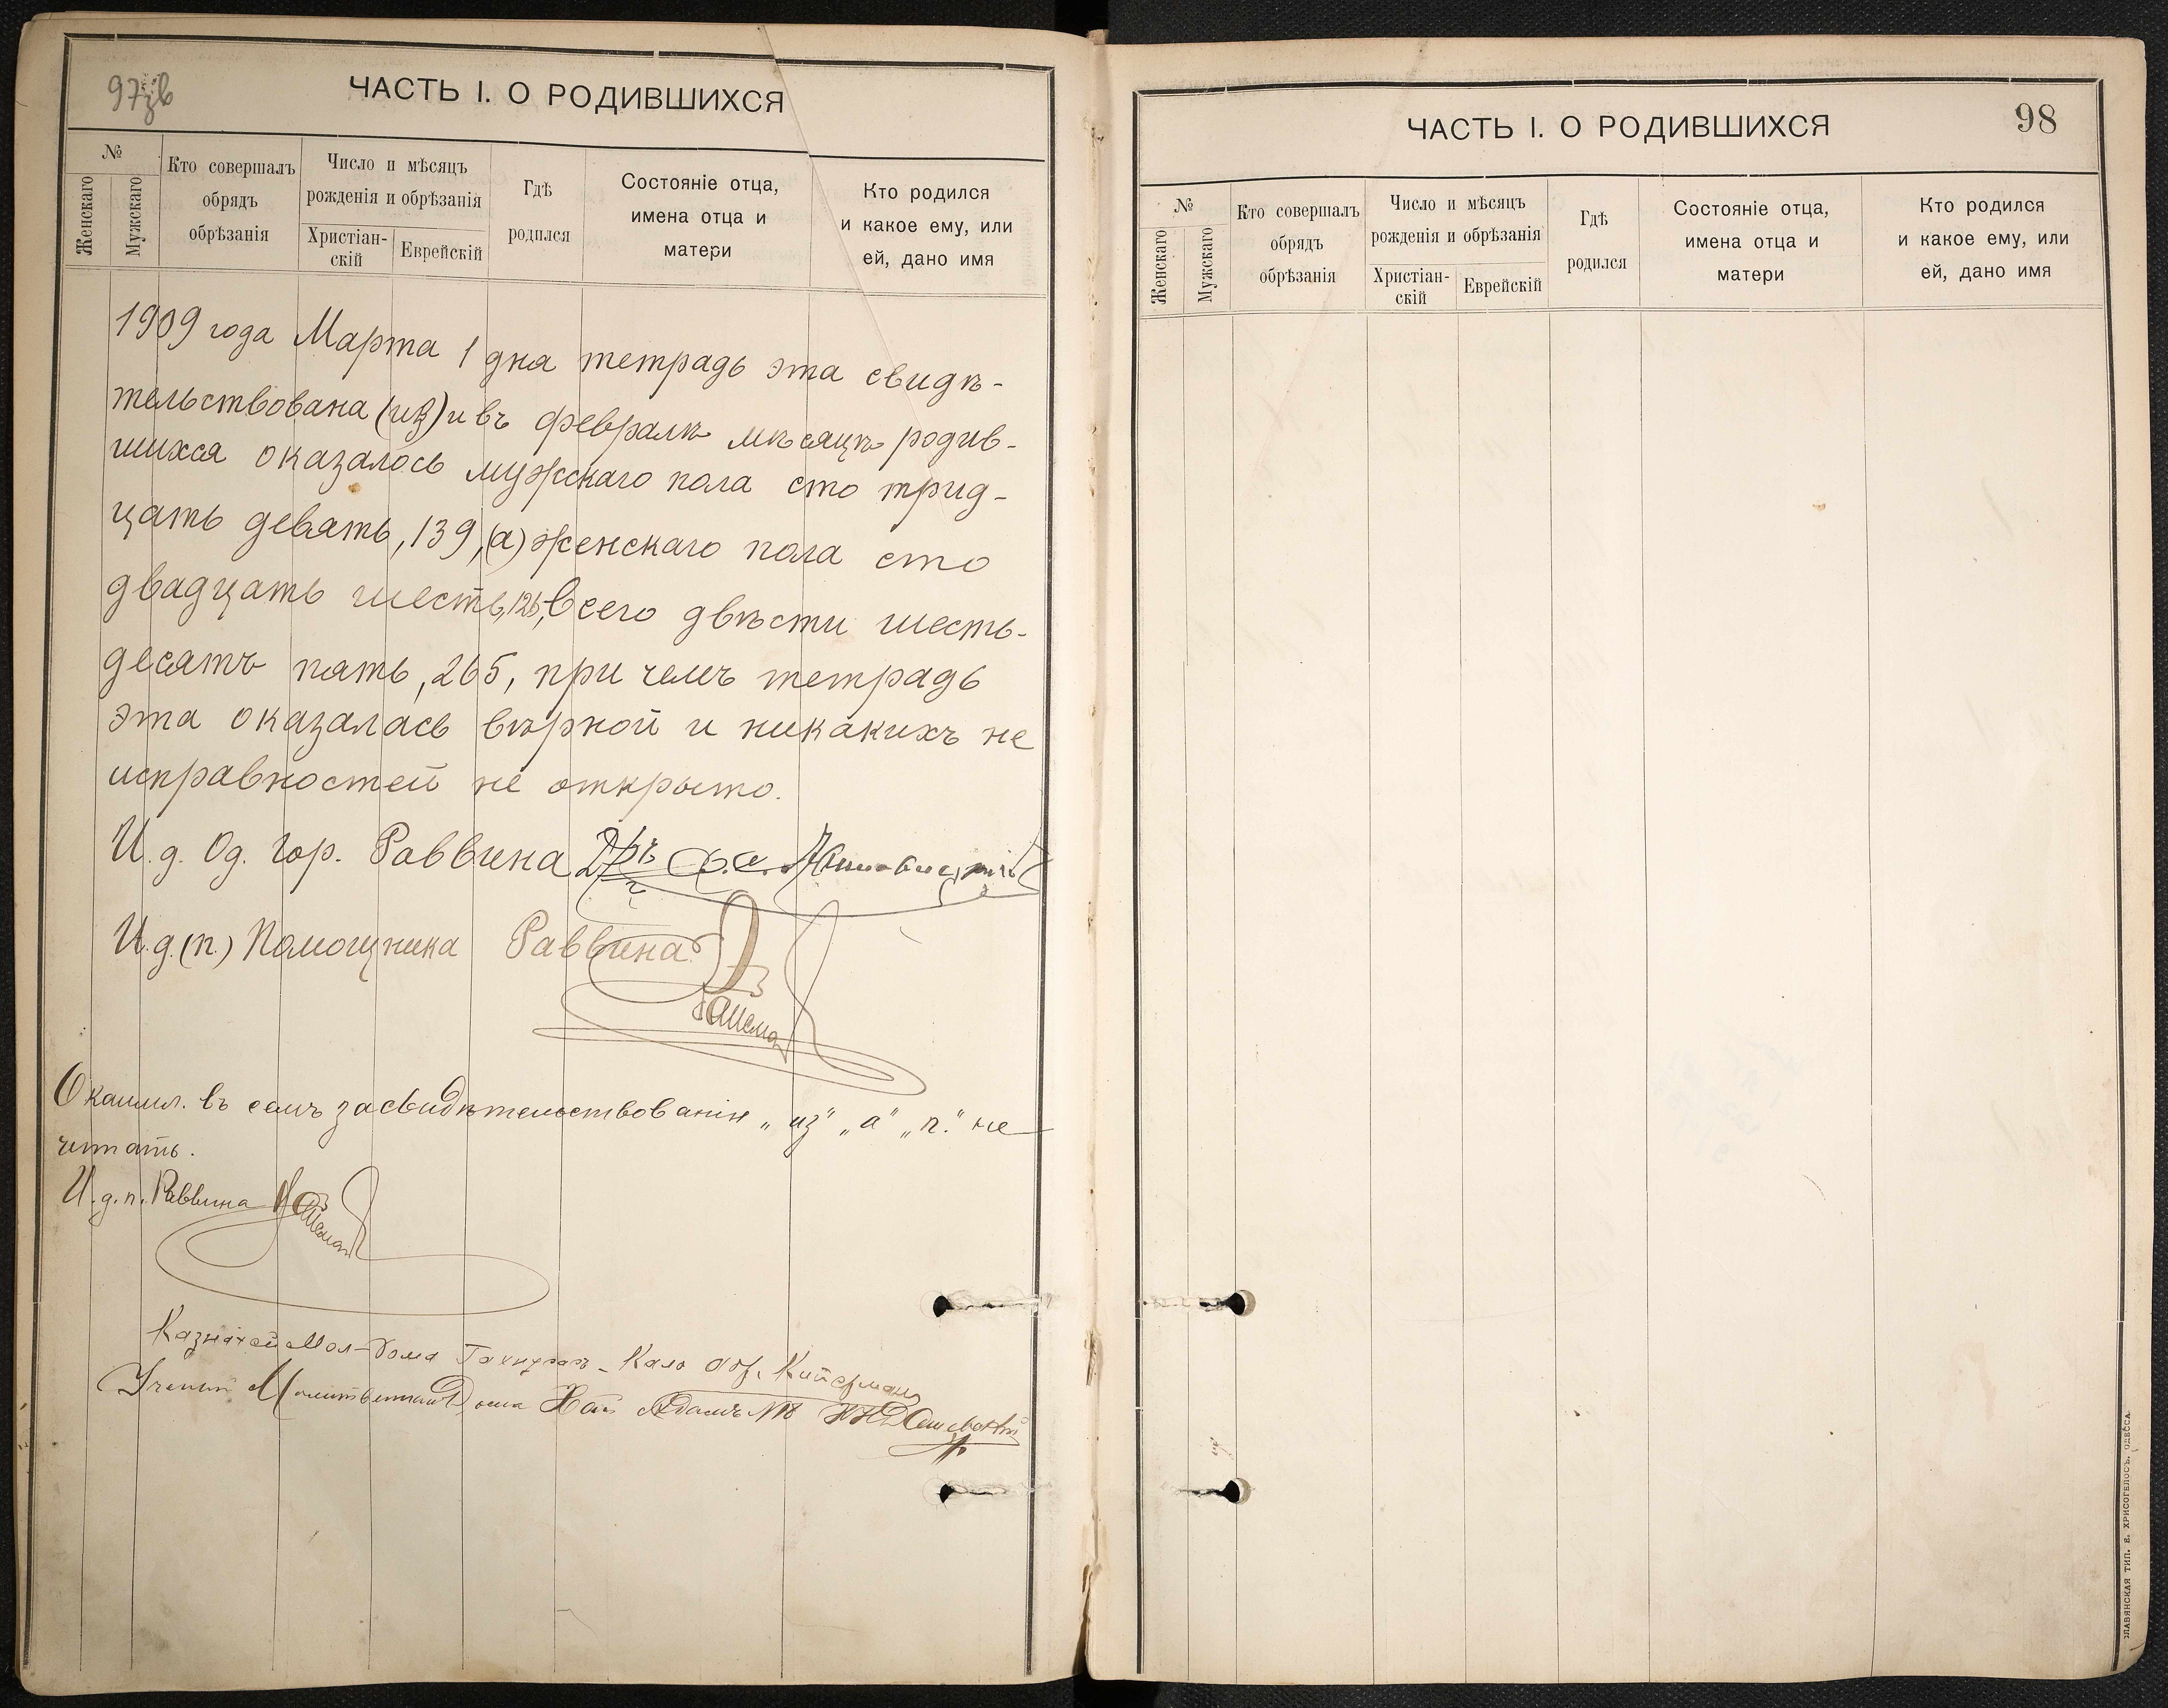 97зв
ЧАСТЬ I. О РОДИВШИХСЯ
№
Женскаго
Мужскаго
Кто совершалъ
обрядъ
обрѣзанія
Число и мѣсяцъ
рожденія и обрѣзанія
Христіан-
скій
Еврейскій
Гдѣ
родился
Состояніе отца,
имена отца и
матери
Кто родился
и какое ему, или
ей, дано имя
1909 года Марта 1 дня тетрадь эта свидѣ-
тельствована (из) и въ февралѣ мѣсяцѣ родив-
шихся оказалось мужскаго пола сто трид-
цать девять, 139, (а) женскаго пола сто
двадцать шесть, 126, всего двѣсти шесть-
десятъ пять, 265, при чемъ тетрадь
эта оказалась вѣрной и никакихъ не
исправностей не открыто.
И. д. Од. Гор. Раввина Дръ
И. д. (п.) Помощника Раввина
Окаймл. въ семъ засвидѣтельствованіи „из" „а" „п." не
читать.
И. д. п. Раввина
Казначей Мол-Дома
Ученый Молитвеннаго Дома
ЧАСТЬ I. О РОДИВШИХСЯ
98
№
Женскаго
Мужскаго
Кто совершалъ
обрядъ
обрѣзанія
Число и мѣсяцъ
рожденія и обрѣзанія
Христіан-
скій
Еврейскій
Гдѣ
родился
Состояніе отца,
имена отца и
матери
Кто родился
и какое ему, или
ей, дано имя
СЛАВЯНСКАЯ ТИП. Е. ХРИСОГЕЛОСЪ, ОДЕССА.